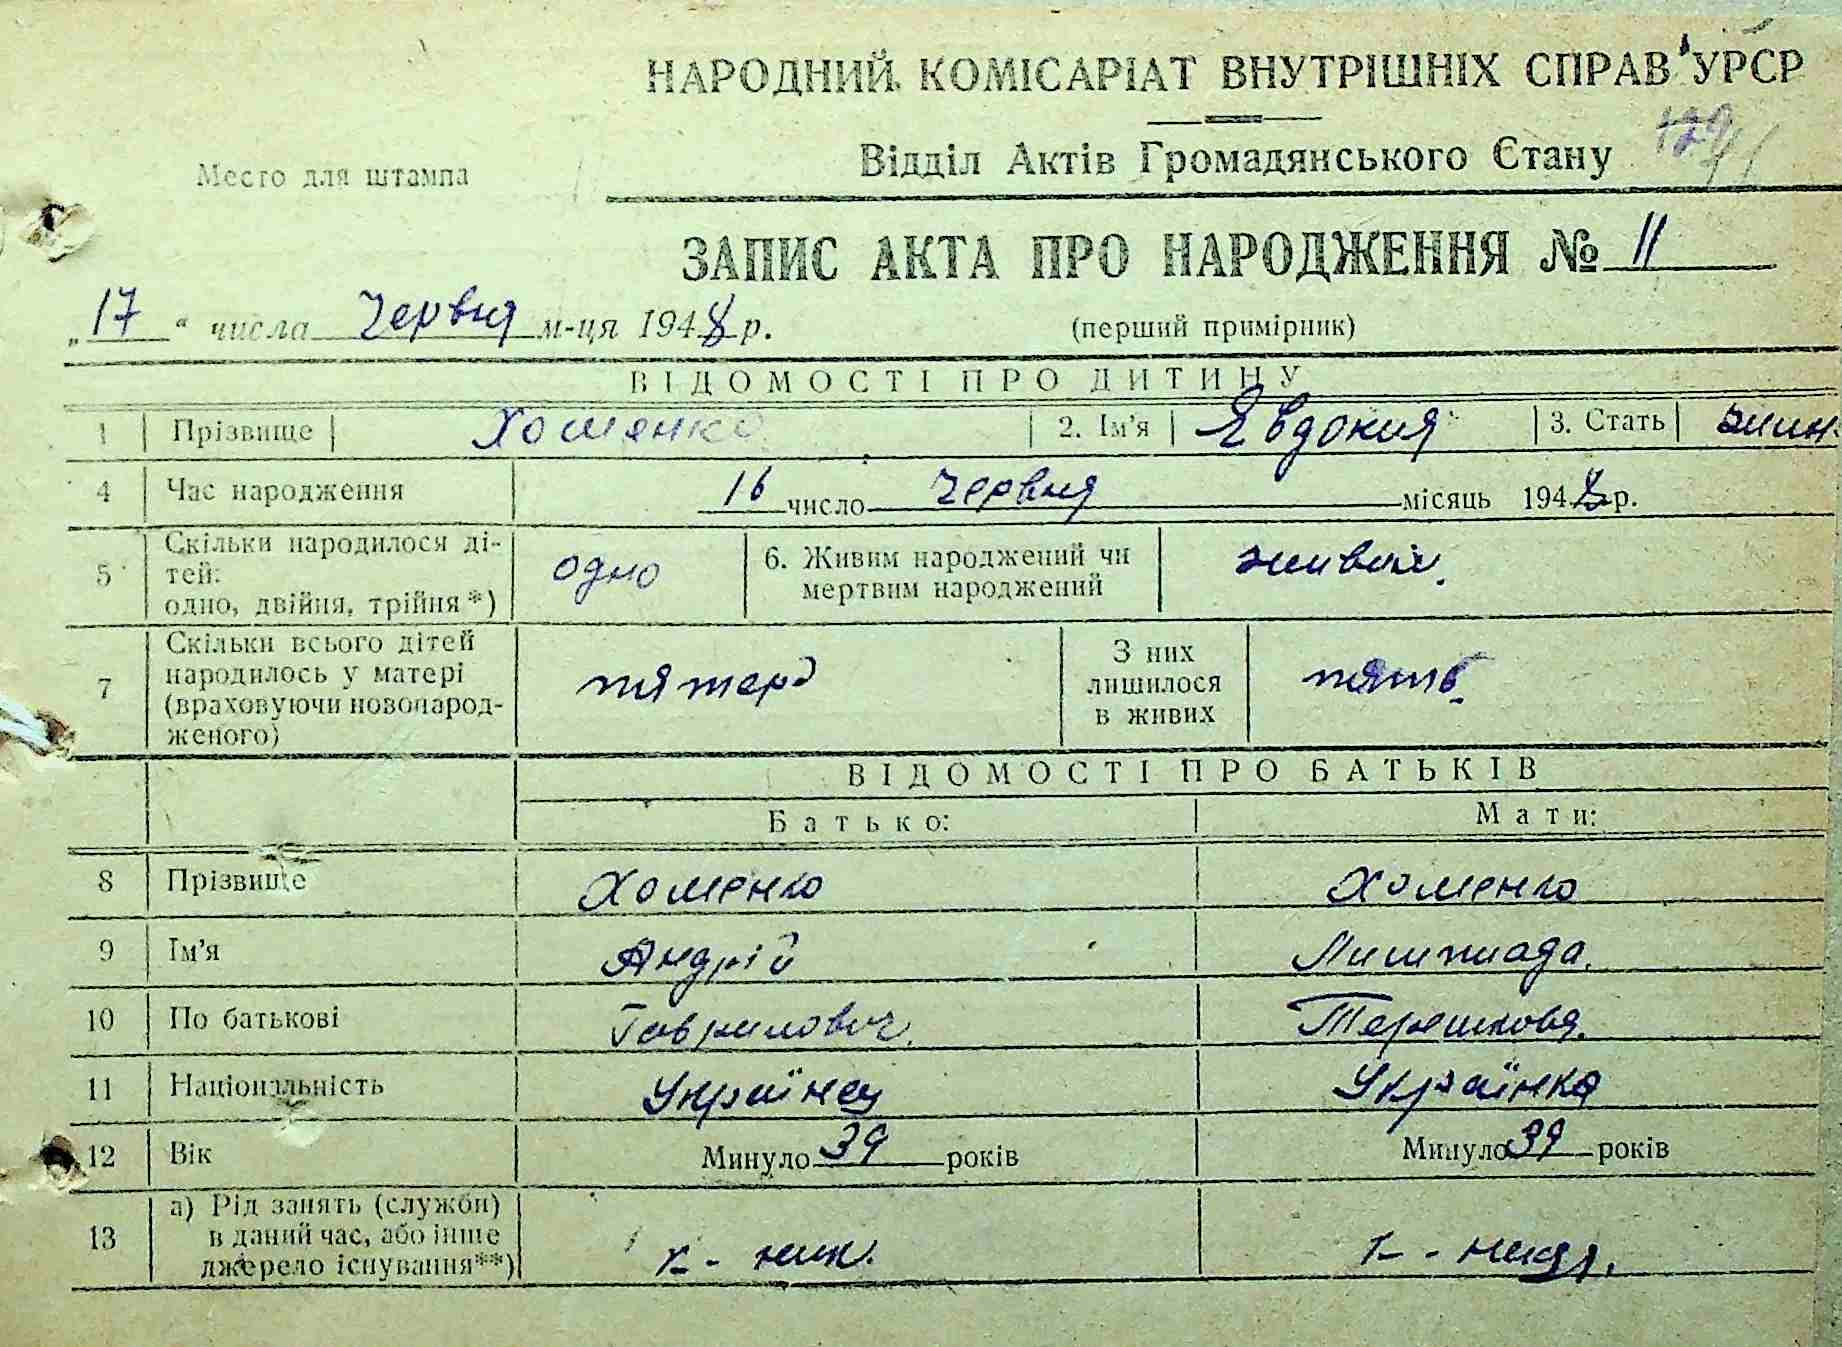 НАРОДНИЙ КОМІСАРІАТ ВНУТРІШНІХ СПРАВ УРСР
Место для штампа
Відділ Актів Громадянського Стану
ЗАПИС АКТА ПРО НАРОДЖЕННЯ № 11
„17“ числа Червня м-ця 1948 р.
(перший примірник)
ВІДОМОСТІ ПРО ДИТИНУ
1 Прізвище Хоменко 2. Ім'я Явдокия 3. Стать жин.
4 Час народження 16 число червня місяць 1948 р.
5 Скільки народилося ді-
тей:
одно, двійня, трійня*) одно
6. Живим народжений чи
мертвим народжений живим.
7 Скільки всього дітей
народилось у матері
(враховуючи новонарод-
женого) пятеро
З них
лишилося
в живих пять.
ВІДОМОСТІ ПРО БАТЬКІВ
Батько: Мати:
8 Прізвище Хоменко Хоменко
9 Ім'я Андрій Лимпиада.
10 По батькові Гаврилович. Терешковя.
11 Національність Українец Українка
12 Вік Минуло 39 років Минуло 39 років
13 а) Рід занять (служби)
в даний час, або інше
джерело існування**) к-ник. к-ниця.